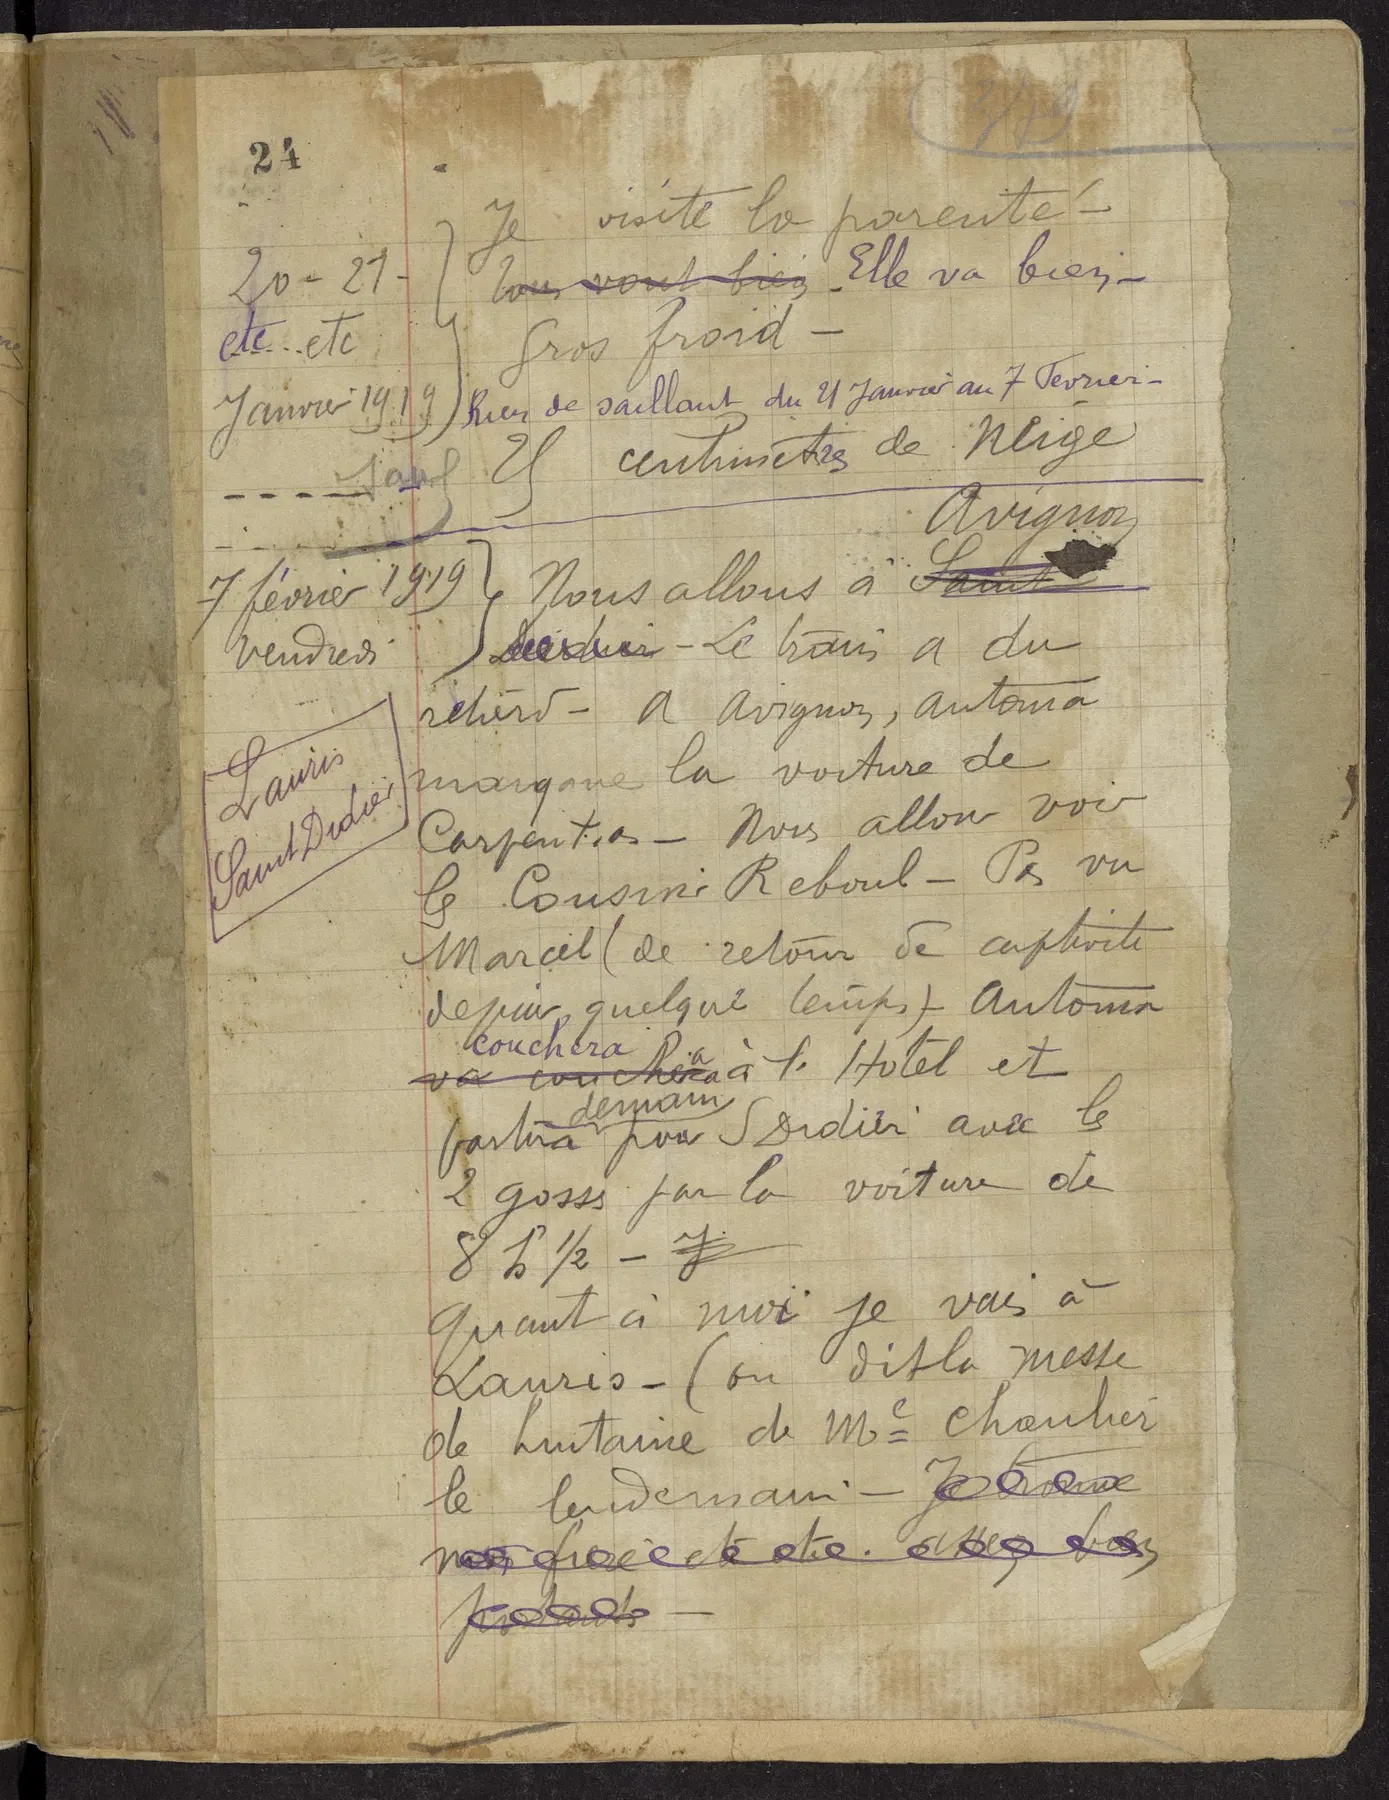 24
Je visite la parenté -
20 - 21 -
Tous vont bien - Elle va bien -
etc.... etc
Gros froid -
Janvier 1919
Rien de saillant du 21 Janvier au 7 Fevrier -
Sauf
25 centimètres de Neige
Avignon
7 février 1919
Nous allons à Saint
vendredi
Didier - Le train a du
retard - A Avignon, Antoma
Lauris
Saint Didier
manque la voiture de
Carpentras - Nous allons voir
les Cousins Reboul - Pas vu
Marcel (de retour de captivité
depuis quelque temps) - Antoma
couchera
va coucher à l' Hotel et
demain
partira pour S Didier avec les
2 gosses par la voiture de
8 h 1/2 - J
Quant à moi je vais à
Lauris - (on dit la messe
de huitaine de Me Chaulier
le lendemain - Je trouve
mon frère etc etc. assez bien
portants -